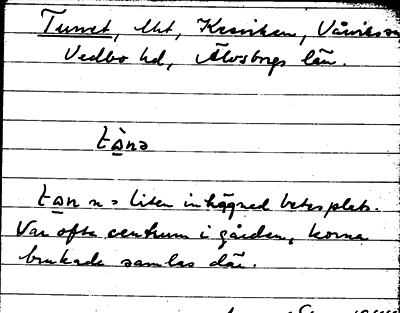 Turret, Ukt, Kesviken, Vårviks sn
Vedbo hd, Älvsborgs län.
tа̀nə
tan n = liten inhägned betesplats.
Var ofta centrum i gården, korna
brukade samlas där.